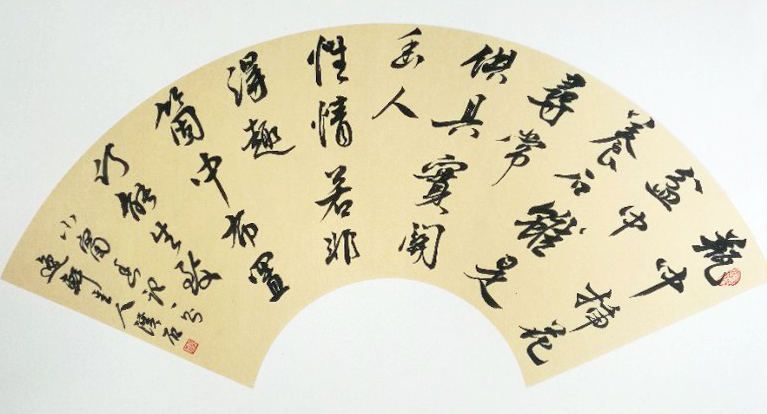 瓶中插花
盆中
養石雖是
尋常
供具實關
幽人
性情若非
得趣
箇中布置
何能生致
小窗幽记
主人